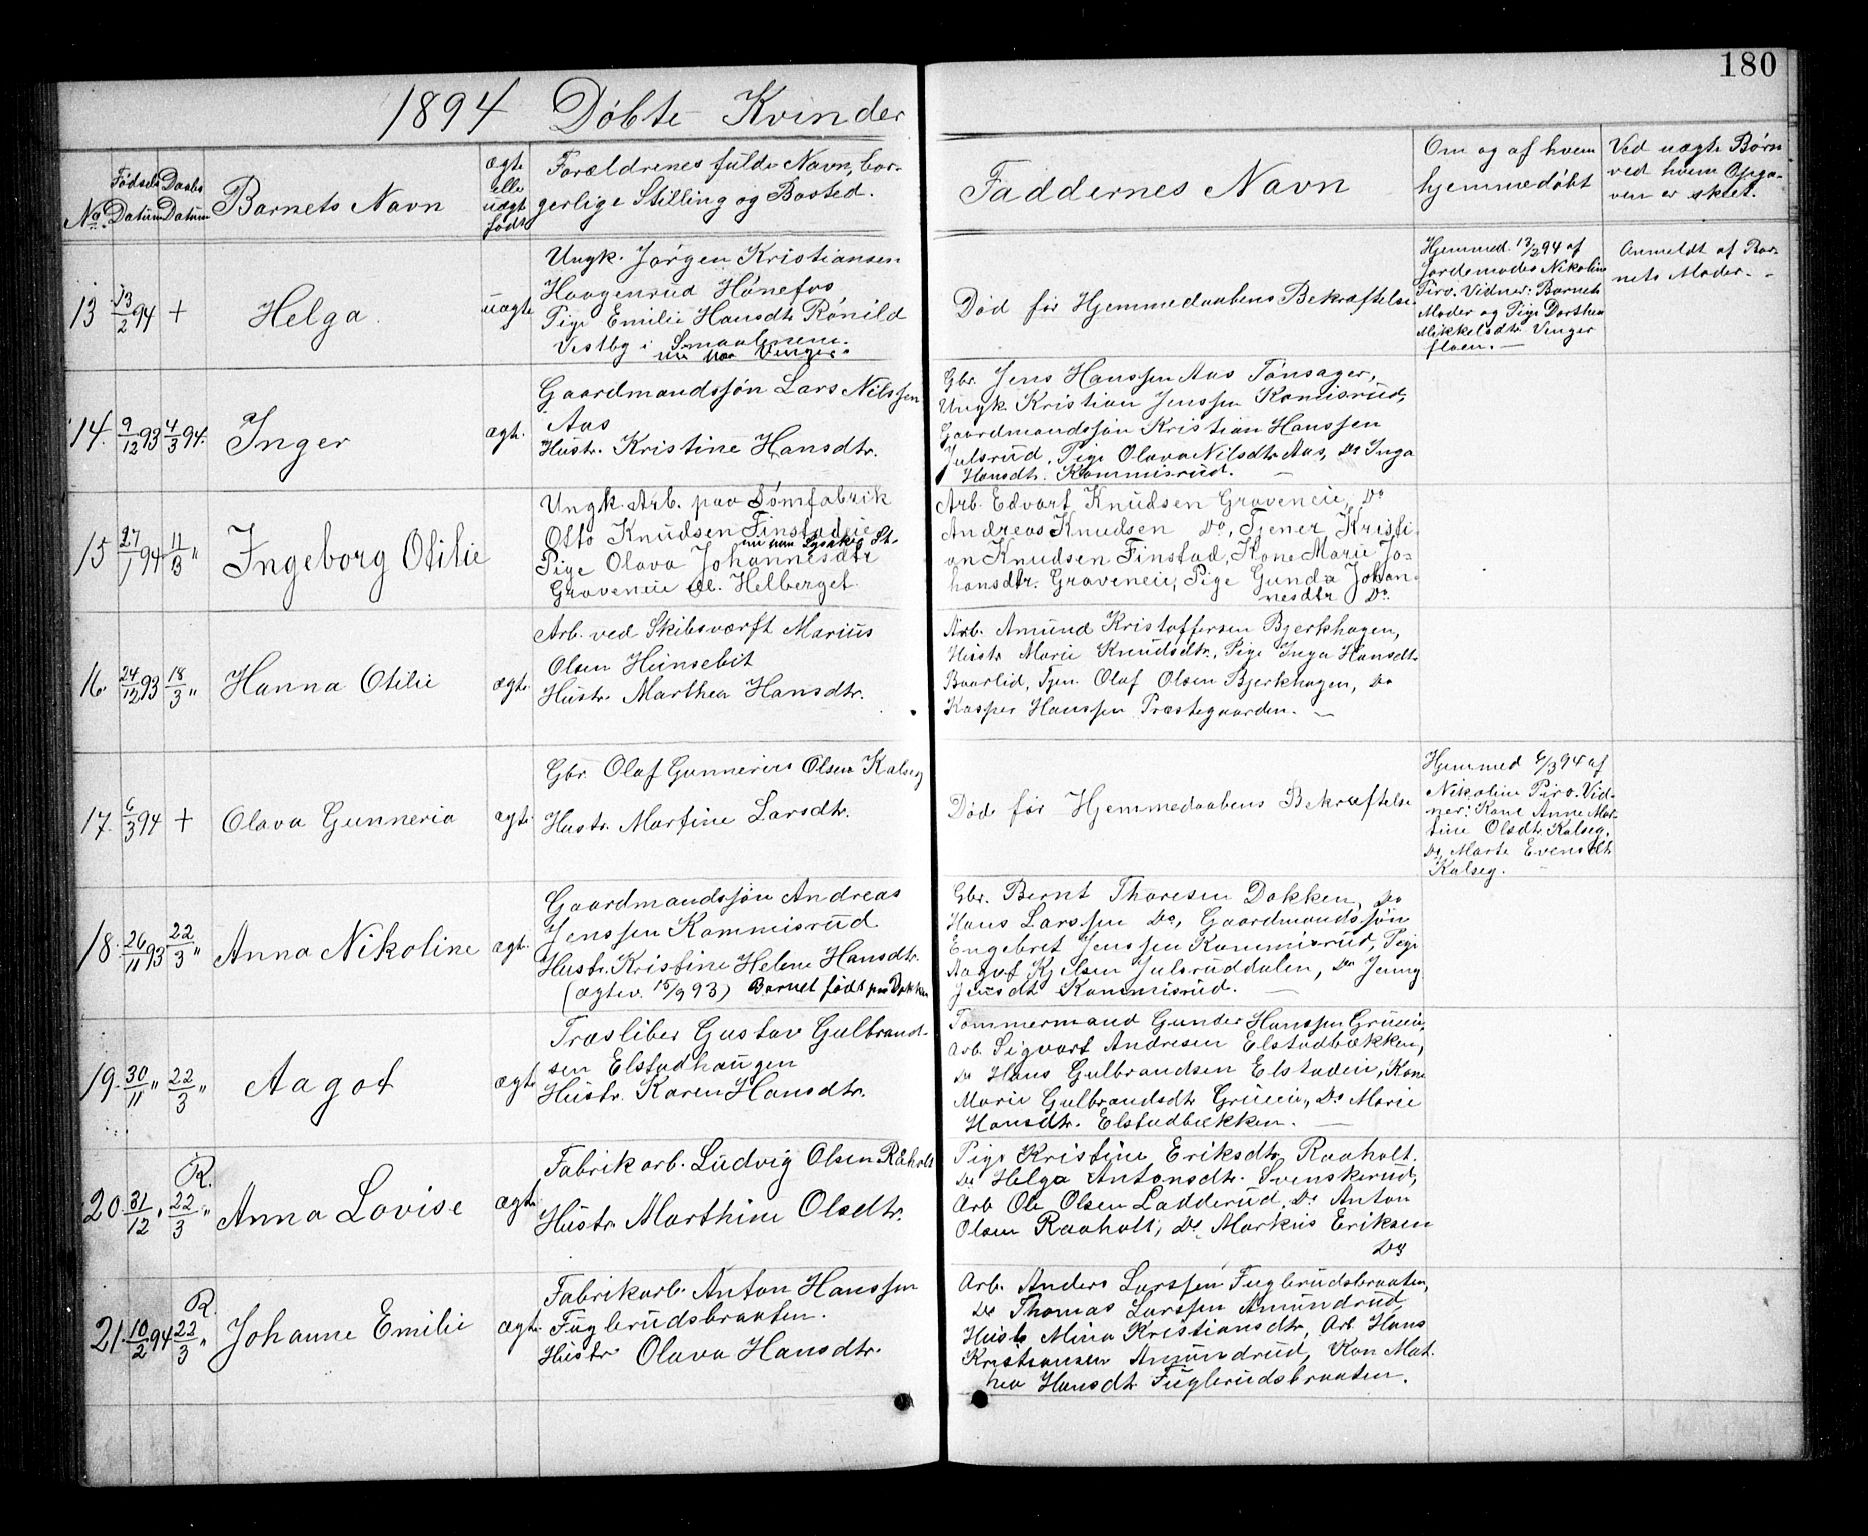 180
1894 Döbte Kvinder
No. Fødsels Datum
Daabs Datum
Barnets Navn
ægte
elle
uægt
født
Forældrenes fulde Navn, bor-
gerlige Stilling og Bosted.
Faddernes Navn
Om og af hvem
hjemmedøbt
Ved uægte Børn
ved hvem Opga-
ven er skeet.
13 13/2 94 + Helga uægte
Ungk. Jørgen Kristiansen
Haagenrud Hönefos
Pige Emilie Hansdtr Rönild
Vestby i Smaalenene.
nu paa Vinger.
Död før Hjemmedaabens Bekræftelse
Hjemmed. 13/2 94 af
Jordemoder Nikoline
Piro. Vidner: Barnets
Moder og Pige Dorthea
Mikkelsdtr Vinger
floen. —
Anmeldt af Bar-
nets Moder. -
14. 9/12 93 4/3 94. Inger ægt.
Gaardmandssøn Lars Nilssen
Aas
Hustr. Kristine Hansdtr.
Gbr. Jens Hanssen Aas Tönsager,
Ungk. Kristian Jenssen Komisrud,
Gaardmandssøn Kristian Hanssen
Julsrud, Pige Olava Nilsdtr Aas, Do Inga
Hansdtr. Kommisrud. —
15 27/1 94 11/3 " Ingeborg Otilie
Ungk. Arb. paa Sömfabrik
Otto Knudsen Finstadeie
nu paa Lysaker St.
Pige Olava Johannesdtr
Graveneie Helberget.
Arb. Edvart Knudsen Graveneie, Do
Andreas Knudsen Do, Tjener Kristi-
an Knudsen Finstad, Kone Marie Jo-
hansdtr. Graveneie, Pige Gunda Johan-
nesdtr Do.
16. 24/12 93 18/3 " Hanna Otilie ægt.
Arb. ved Skibsværft Marius
Olsen Heinsebit
Hustr. Marthea Hansdtr.
Arb. Amund Kristoffersen Bjerkhagen,
Hustr Marie Knudsdtr., Pige Inga Hansdtr
Baarlid, Tjen. Olaf Olsen Bjerkhagen, Do
Kasper Hanssen Præstegaarden. —
17. 6/3 94 + Olava Gunneria ægt.
Gbr. Olaf Gunnerius Olsen Kalseg
Hustr. Martine Larsdtr.
Död før Hjemmedaabens Bekræftelse
Hjemmed 6/3 94 af
Nikoline Piro. Vid-
ner: Kone Anne Mar-
tine Olsdtr Kalseg.
Do Marte Evensdtr
Kalseg. —
18. 26/11 93 22/3 " Anna Nikoline ægt.
Gaardmandssjøn Andreas
Jenssen Kommisrud
Hustr. Kristine Helene Hansdtr.
(ægtev. 15/9 93) Barnet født paa Dokken
Gbr. Bernt Thoresen Dokken, Do
Hans Larssen Do, Gaardmandssjøn
Engebret Jenssen Kommisrud, Pige
Aagot Kjelsen Julsruddalen, Do Jenny
Jensdtr Kommisrud. —
19. 30/11 " 22/3 " Aagot ægt.
Træsliber Gustav Gulbrand-
sen Elstadhaugen
Hustr. Karen Hansdtr.
Tømmermand Gunder Hanssen Grueie,
Arb. Sigvart Andresen Elstadbækken,
Do Hans Gulbrandsen Elstadeie, Kone
Marie Gulbrandsdtr Grueie, Do Marie
Hansdtr. Elstadbækken. —
20. 31/12 " R. 22/3 " Anna Lovise ægt.
Fabrikarb. Ludvig Olsen Råholt
Hustr Marthine Olsdtr.
Pige Kristine Eriksdtr Raaholt.
Do Helga Antonsdtr. Svenskerud,
Arb Ole Olsen Ladderud, Do Anton
Olsen Raaholt, Do Markus Eriksen
Do
21. 10/2 94 R. 22/3 " Johanne Emilie ægt.
Fabrikarb. Anton Hanssen
Fuglerudsbraaten.
Hustr Olava Hansdtr.
Arb. Anders Larssen Fuglerudsbraaten,
Do Thomas Larssen Amundrud,
Hustr Mina Kristiansdtr, Arb. Hans
Kristiansen Amundrud, Kon Mat-
hea Hansdtr Fuglerudsbraaten.